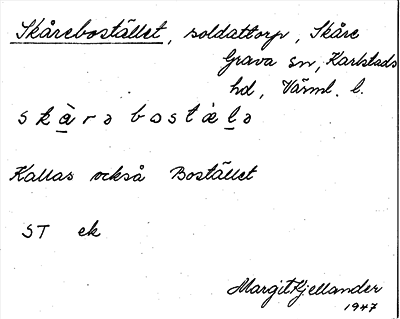 Skårebostället, soldattorp, Skåre
Grava sn, Karlstads
hd, Värml. l.
skὰ̱rə bostὰḻə
Kallas också Bostället
ST ek
Margit Kjellander
1947